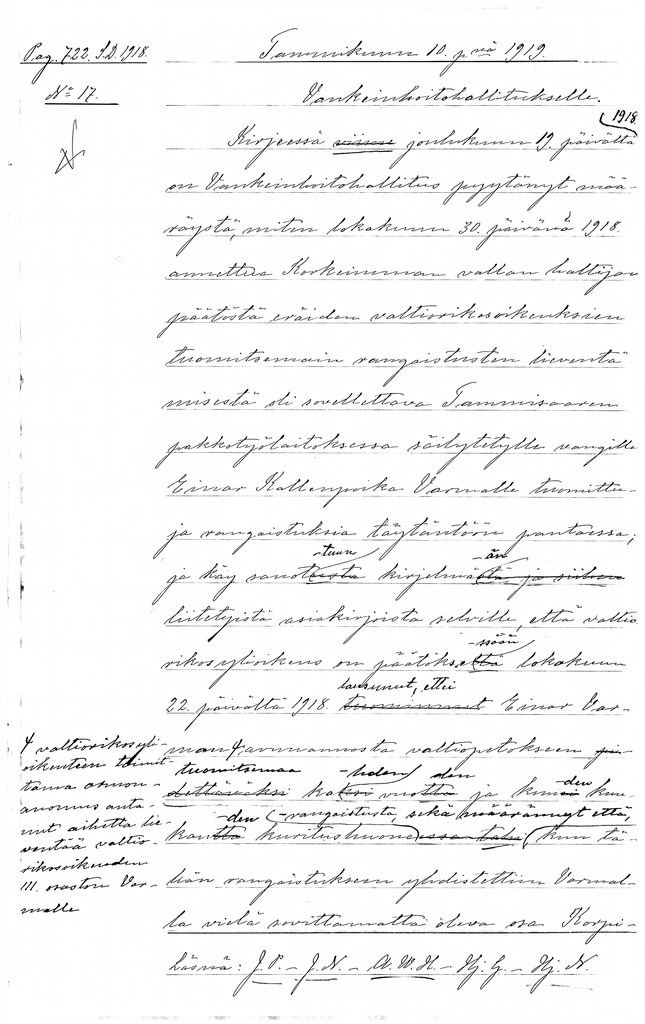 Pag. 722. S.D. 1918.
Tammikuun 10. pnä 1919.
No 17.
Vankeinhoitohallitukselle.
1918.
Kirjeessä viisse joulukuun 19. päivältä
on Vankeinhoitohallitus pyytänyt mää-
räystä, miten lokakuun 30. päivänä 1918.
annettua Korkeimman vallan haltijan
päätöstä eräiden valtiorikosoikeuksien
tuomitsemain rangaistusten lieventä
misestä oli sovellettava Tammisaaren
pakkotyölaitoksessa säilytetylle vangille
Einar Kallenpoika Varmalle tuomittu-
ja rangaistuksia täytäntöön pantaessa;
-tuun -än
ja käy sanotusta kirjelmästä ja siihen
liitetyistä asiakirjoista selville, että valtio
-ssään
rikosylioikeus on päätöksellä lokakuun
lausunut, ettei
22. päivältä 1918. tuominnut Einar Var-
man avunannosta valtiopetokseen pi-
tuomitsemaa -hden den -den
dettäväksi kaksi vuotta ja kuusi kuu-
-den -rangaistusta, sekä määrännyt että,
kautta kuritushuoneessa kun tä-
hän rangaistukseen yhdistettiin Varmal-
la vielä sovittamatta oleva osa Korpi-
Läsnä: J. P. – J. N. – A. W. H. – Hj. G. – Hj. N.
valtiorikosyli-
oikeuteen toimit-
tama armon-
anomus anta-
nut aihetta lie-
ventää valtio-
rikosoikeuden
III. osaston Var-
malle